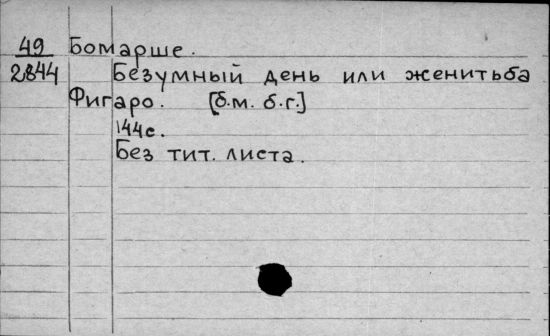 49 Бомарше.
2844 Безумный день или женитьба
Фигаро. [б.м. б.г.]
144с.
Без тит. листа.